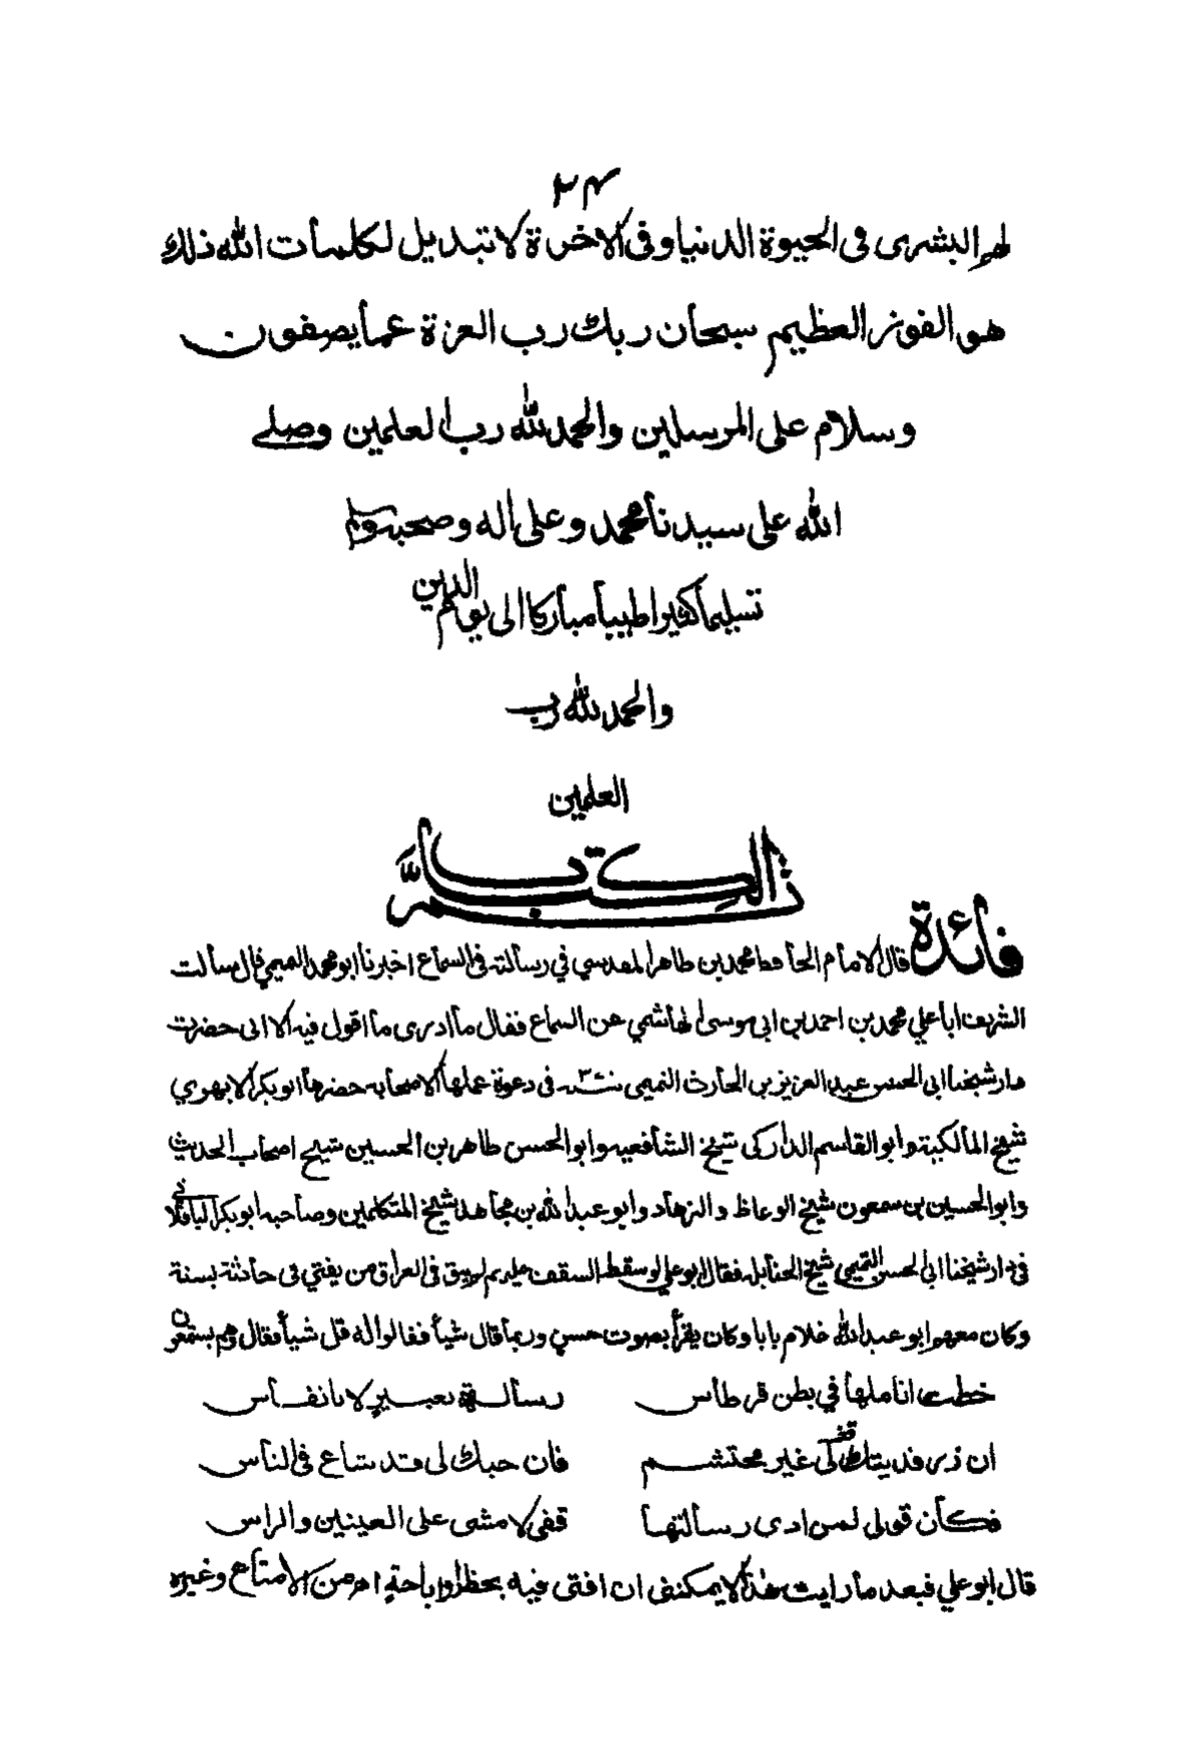 ٣٤
لهم البشرى فى الحيوة الدنيا وفى الاخرة لا تبديل لكلمات الله ذلك
هو الفوز العظيم سبحان ربك رب العزة عما يصفون
وسلام على المرسلين والحمد لله رب العلمين وصلى
الله على سيدنا محمد وعلى اله وصحبه وسلم
تسليما كثيرا طيبا مباركا الى يوم الدين
والحمد لله رب
العلمين
تم الكتب
فائدة قال الامام الحافظ محمد بن طاهر المقدسي في رسالته فى السماع اخبرنا ابو محمد التميمي قال سالت
الشريف ابا علي محمد بن احمد بن ابى موسى الهاشمي عن السماع فقال ما ادرى ما اقول فيه الا انى حضرت
دار شيخنا ابى الحسن عبد العزيز بن الحارث التميمى سنة ٣٧٠ فى دعوة عملها لاصحابه حضرها ابو بكر الابهري
شيخ المالكية وابو القاسم الداركى شيخ الشافعيه وابو الحسن طاهر بن الحسين شيخ اصحاب الحديث
وابو الحسين بن سمعون شيخ الوعاظ والزهاد وابو عبد الله بن مجاهد شيخ المتكلمين وصاحبه ابو بكر الباقلانى
فى دار شيخنا ابى الحسن التميمى شيخ الحنابله فقال ابو علي لو سقط السقف عليهم لم يبق فى العراق من يفتي فى حادثة بسنة
وكان معهم ابو عبد الله غلام بابا وكان يقرأ بصوت حسن وربما قال شيأ فقالوا له قل شيأ فقال وهم يسمعون
خطت اناملها في بطن قرطاس رسالة بعبير لا بانفاس
ان زر فديتك قف لى غير محتشم فان حبك لى قد شاع فى الناس
فكان قولى لمن ادى رسالتها قفى لامشى على العينين والراس
قال ابو علي فبعد ما رايت هذا لا يمكننى ان افتى فيه بحظر او اباحة اهـ من الامتاع وغيره